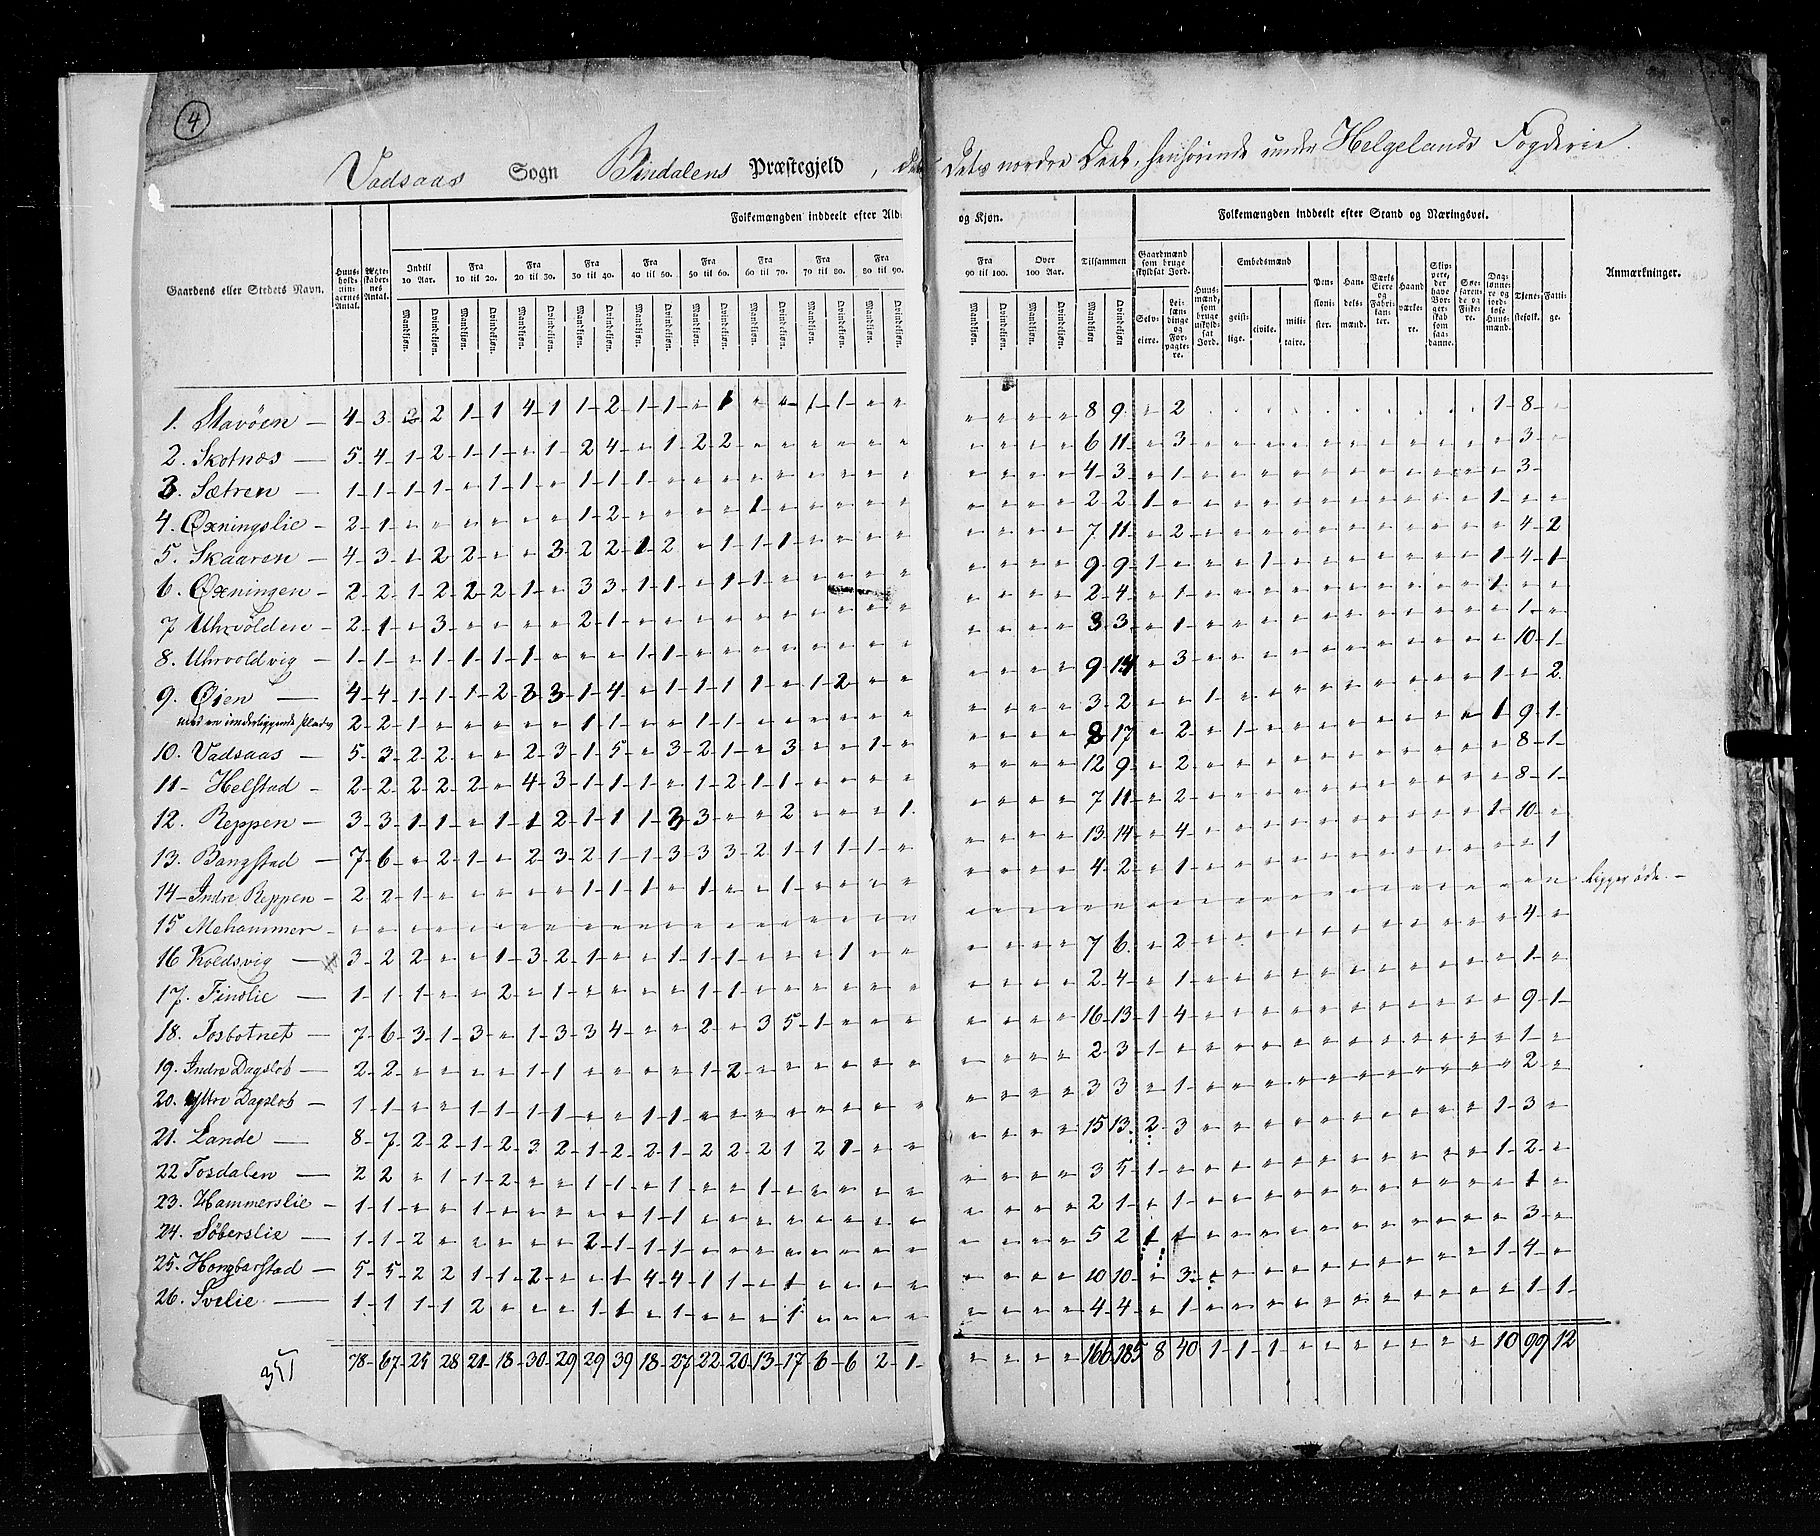 4
Vadsaas Sogn Bindalens Præstegjeld, dets nordre Deel, henhørende under Helgelands Fogderie.
Gaardens eller Stedets Navn.
Huusholdningernes Antal.
Ægteskabernes Antal.
Folkemængden inddeelt efter Alder og Kjøn.
Indtil 10 Aar. Fra 10 til 20. Fra 20 til 30. Fra 30 til 40. Fra 40 til 50. Fra 50 til 60. Fra 60 til 70. Fra 70 til 80. Fra 80 til 90. Fra 90 til 100. Over 100 Aar. Tilsammen
Mandkjøn. Qvindekjøn.
Folkemængden inddeelt efter Stand og Næringsvei.
Gaardmænd som bruge skyldsat Jord. Selveiere. Leilændinge og Forpagtere.
Huusmænd, som bruge uskyldsat Jord.
Embedsmænd geistlige. civile. militaire.
Pensionister. Handelsmænd. Værks Eiere og Fabrikanter. Haandværkere. Skippere, der have Borgerskab som saadanne. Søefarende og Fiskere. Daglønnere og jordløse Huusmænd. Tjenestefolk. Fattige.
Anmærkninger.
1. Stavöen 4 3 2 2 1 1 4 1 1 2 1 1 " 1 " " 1 1 " " " " " " 8 9 " 2 1 8
2. Skotnæs 5 4 1 2 1 1 " 1 2 4 " 1 2 2 " " " " " " " " " " 6 11 " 3 " " " " " " " " " " " " 3
3. Sætren 1 1 1 1 " 1 1 " 1 1 1 " " " " " " " " " " " " " 4 3 " 1 " " " " " " " " " " " " 3
4. Øxningslie 2 1 " " " " " " 1 2 " " " " 1 " " " " " " " " " 2 2 1 " " " " " " " " " " " " 1 " "
5. Skaaren 4 3 1 2 2 " " 3 2 2 1 2 " 1 1 1 " " " " " " " " 7 11 " 2 " " " " " " " " " " " " 4 2
6. Øxningen 2 2 1 2 2 2 1 " 3 3 1 1 " 1 1 " " " " " " " " " 9 9 1 " " " 1 " " " " " " " " 1 4 1
7 Uhrvölden 2 1 " 3 " " " " 2 1 " " " " " " " " " " " " " " 2 4 " 1 " " " " " " " " " " " 1 " "
8. Uhrvoldvig 1 1 " 1 1 1 1 " " " 1 1 " " " " " " " " " " " " 3 3 " 1 " " " " " " " " " " " " 1 "
9. Øien 4 4 1 1 1 2 3 3 1 4 " 1 1 1 1 " 1 2 " " " " " " 9 14 " 3 " " " " " " " " " " " " 10 1
2 2 1 " " " " " 1 1 " " 1 1 " " " " " " " " " " 3 2 " " 1 " " " " " " " " " " 1 " 2
10. Vadsaas 5 3 2 2 " " 2 3 1 5 " 3 2 1 " 3 " " 1 " " " " " 8 17 " 2 " 1 " " " " " " " " " 1 9 1
11 Helstad 2 2 2 2 2 " 4 3 1 1 1 " 1 2 1 1 " " " " " " " " 12 9 " 2 " " " " " " " " " " " " 8 1
12. Reppen 3 3 1 1 " 1 1 2 1 1 1 3 3 " " 2 " " " 1 " " " " 7 11 " 2 " " " " " " " " " " " " 8 1
13. Bangstad 7 6 " 2 1 " 2 3 2 1 1 3 3 3 2 1 1 1 1 " " " " " 13 14 " 4 " " " " " " " " " " " 1 10 "
14 Indre Reppen 2 2 1 " " " " " 1 1 1 " 1 " " 1 " " " " " " " " 4 2 " 1 " " " " " " " " " " " " " 1
15 Mehammer " " " " " " " " " " " " " " " " " " " " " " " " " " " " " " " " " " " " " " " " ligger öde.
16 Koldsvig 3 2 2 " " 1 3 2 1 " " 1 1 1 " " " 1 " " " " " " 7 6 " 2 " " " " " " " " " " " " 4 "
17. Finslie 1 1 1 " " 2 " 1 " " " " 1 1 " " " " " " " " " " 2 4 " 1 " " " " " " " " " " " " 1 "
18. Tosbotnet 7 6 3 1 3 " 1 3 3 4 " " 2 " 3 5 1 " " " " " " " 16 13 1 4 " " " " " " " " " " " " 9 1
19. Indre Dagslot 2 2 " " " " 1 1 " " " " 1 2 " " " " " " " " " " 2 3 1 " " " " " " " " " " " " " 1 "
20. Yttre Dagslot 1 1 " " 1 1 1 1 " " 1 1 " " " " " " " " " " " " 3 3 " 1 " " " " " " " " " " " " 2 "
21. Lande 8 7 2 2 1 2 3 2 1 2 2 1 2 2 2 1 2 1 " " " " " " 15 13 2 3 " " " " " " " " " " " 1 3 "
22 Tosdalen 2 2 " 1 1 2 " " 1 1 " 1 " " 1 " " " " " " " " " 3 5 1 " " " " " " " " " " " " 1 2 "
23. Hammerslie 1 1 " " 1 " " " " " 1 1 " " " " " " " " " " " " 2 1 " 1 " " " " " " " " " " " " 1 "
24. Söberslie 1 1 2 " " " " " 2 1 1 1 " " " " " " " " " " " " 5 2 1 1 " " " " " " " " " " " " 3 "
25. Hongbarstad 5 5 2 2 1 1 2 " " 1 4 4 1 1 " 1 " " " " " " " " 10 10 " 3 " " " " " " " " " " " 1 4 "
26. Svelie 1 1 1 1 2 " " " 1 1 " 1 " " " 1 " " " " " " " " 4 4 " 1 " " " " " " " " " " " " 1 1
351 78 67 25 28 21 18 30 29 29 39 18 27 22 20 13 17 6 6 2 1 " " " " 166 185 8 40 1 1 1 " " " " " " " " 10 99 12